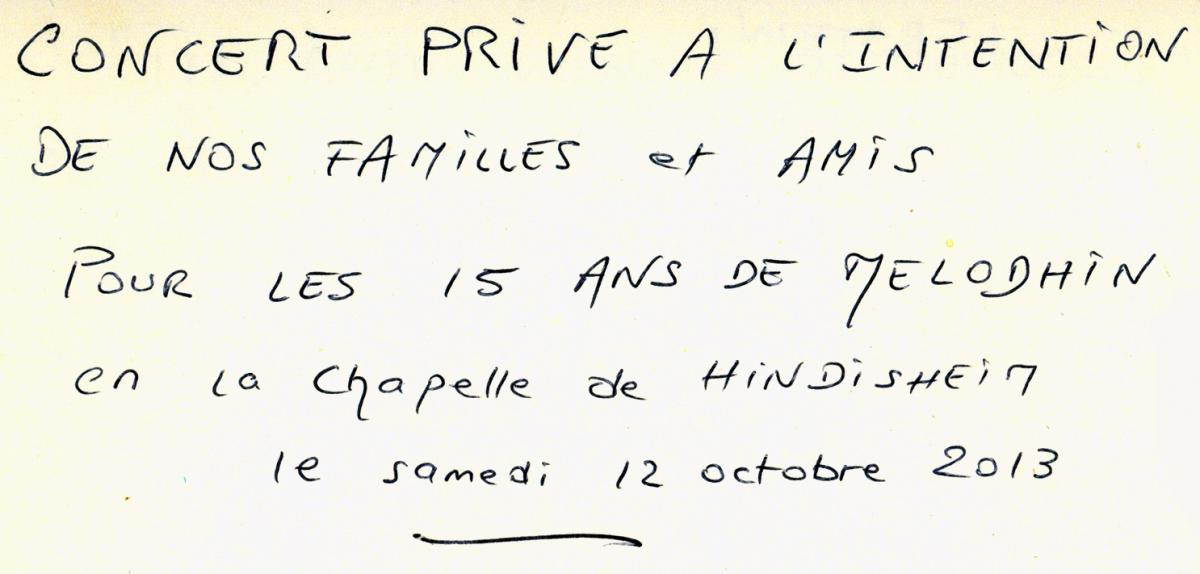 CONCERT PRIVE A L'INTENTION
DE NOS FAMILLES et AMIS
POUR LES 15 ANS DE MELODHIN
en la Chapelle de HINDISHEIM
le samedi 12 octobre 2013